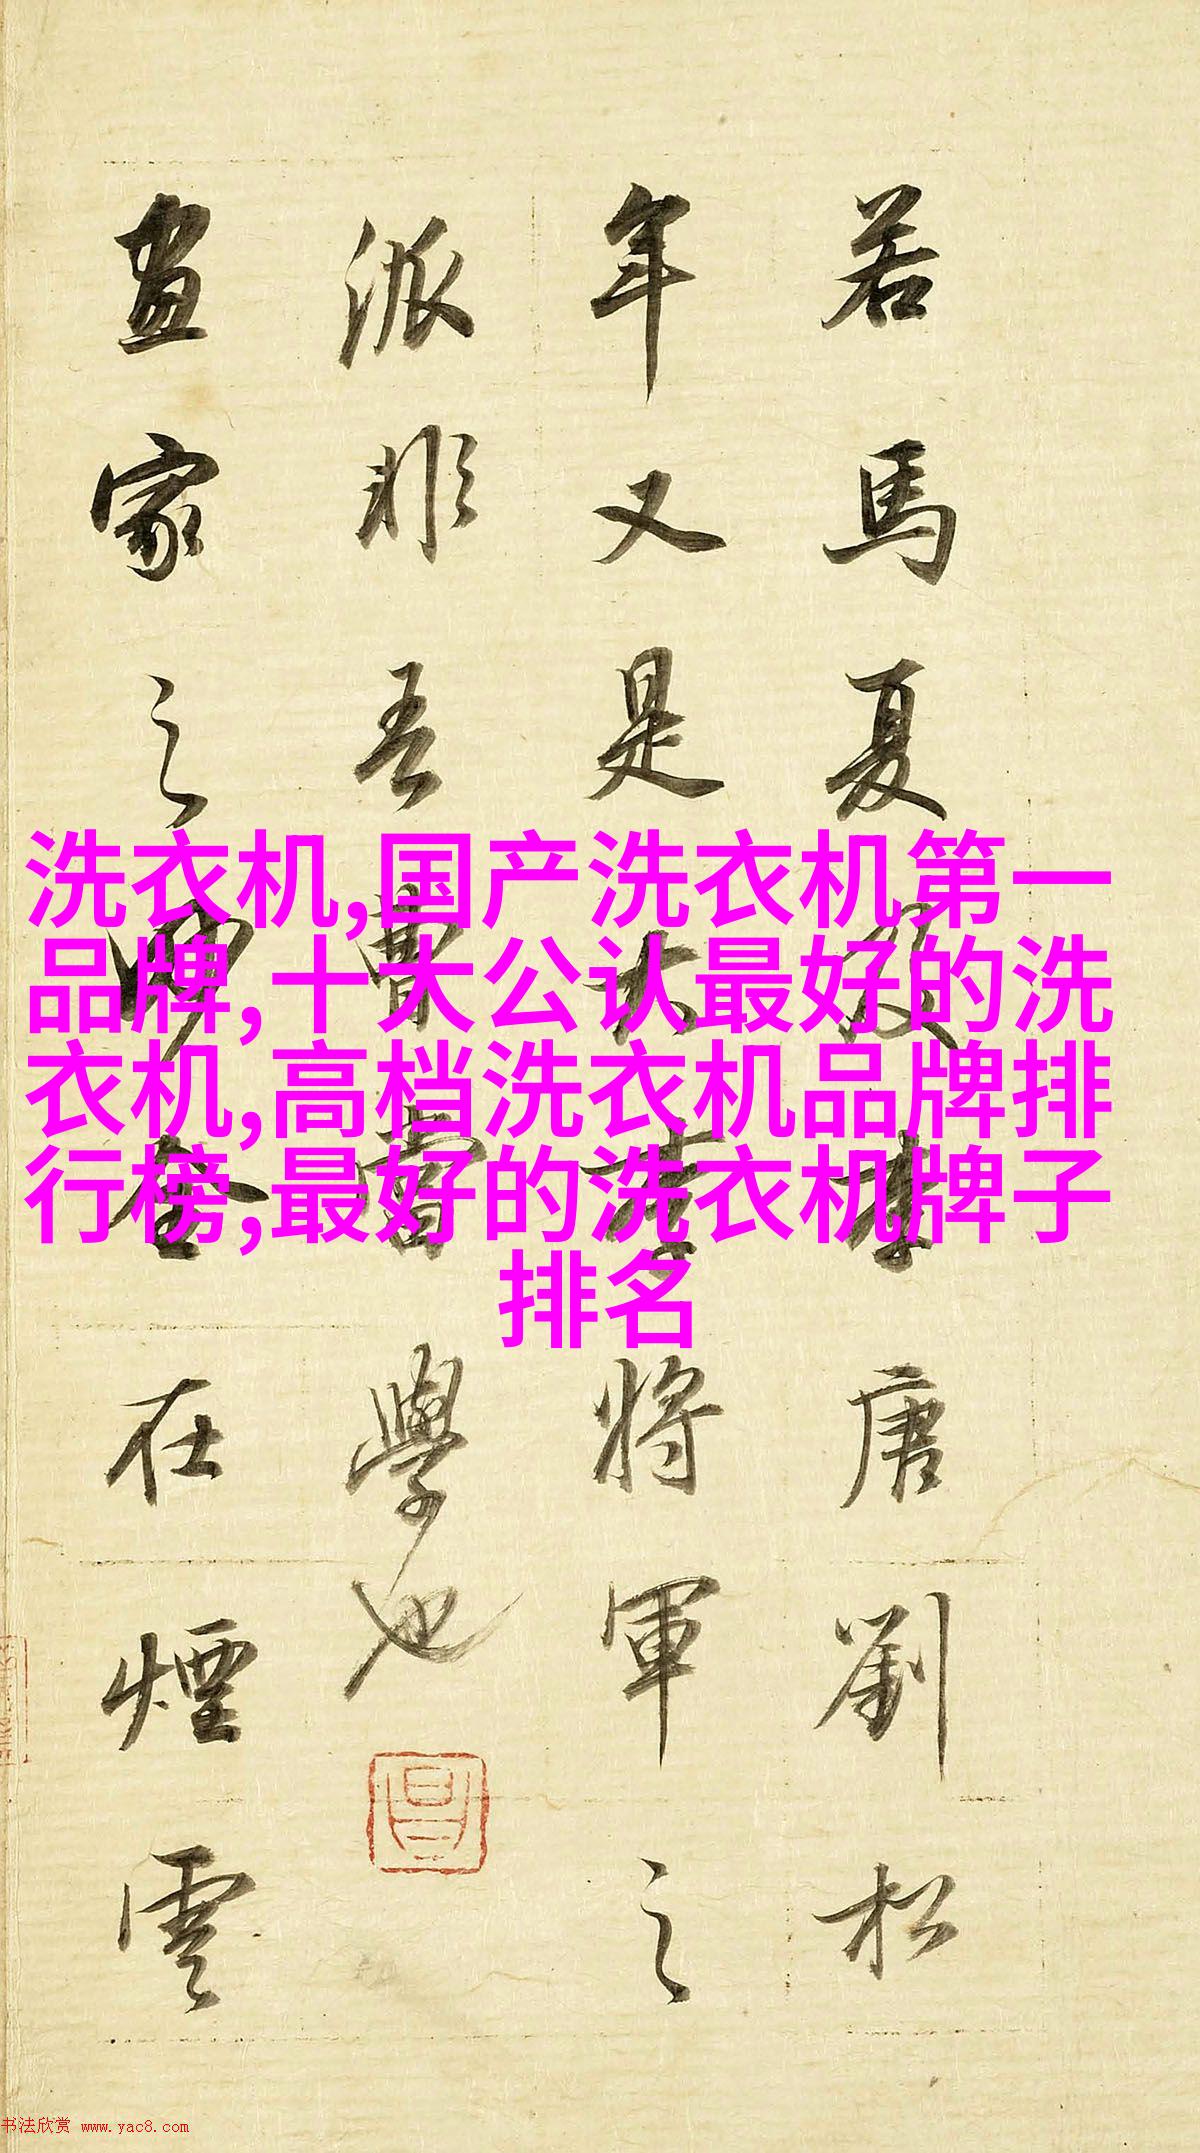 洗衣机,国产洗衣机第一
品牌,十大公认最好的洗
衣机,高档洗衣机品牌排
行榜,最好的洗衣机牌子
排名
若馬夏及李唐劉松
年又是大李將軍之
派非吾曹當學也
畫家之妙全在煙雲
书法欣赏 www.yac8.com